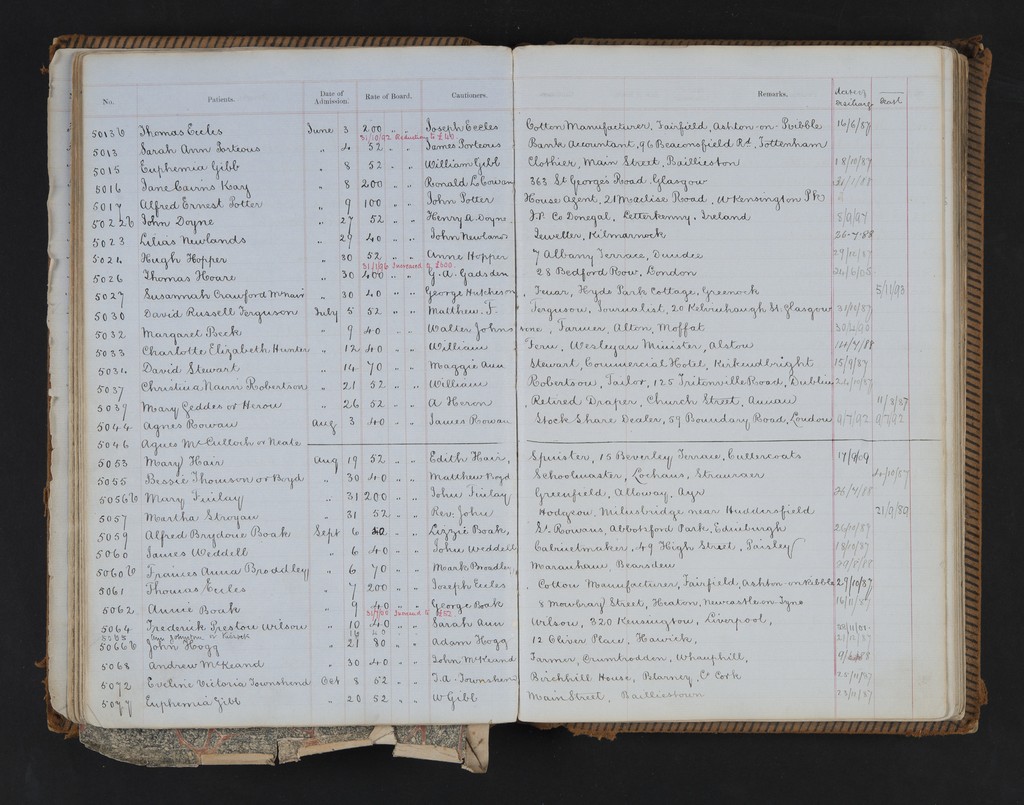 No. Patients. Date of Admission. Rate of Board. Cautioners. Remarks. date of discharge Dead
5013b Thomas Eccles June 3 200 " " Joseph Eccles Cotton Manufacturer, Fairfield, Ashton-on-Ribble 16/6/87
31/10/92 Reduction to £60
5013 Sarah Ann Porteous " 4 52 " " James Porteous Bank Accountant, 96 Beaconsfield Rd, Tottenham
5015 Euphemia Gibb " 8 52 " " William Gibb Clothier, Main Street, Baillieston 18/10/87
5016 Jane Cairns Kay " 8 200 " " Ronald L. Cowan 363 St George's Road Glasgow
5017 Alfred Ernest Potter " 9 100 " " John Potter House Agent, 21 Maclise Road, W Kensington Pk
5022b John Doyne " 27 52 " " Henry A Doyne J.P. Co Donegal, Letterkenny, Ireland 8/9/97
5023 Lilias Newlands " 29 40 " " John Newlands Jeweller, Kilmarnock 26-7-88
5024 Hugh Hopper " 30 52 " " Anne Hopper 7 Albany Terrace, Dundee 29/10/87
31/1/96 Increased to £500
5026 Thomas Hoare " 30 400 " " G. A. Gadsden 28 Bedford Row, London 24/6/05
5027 Susannah Crawford McNair " 30 40 " " George Hutcheson, Feuar, Hyde Park Cottage, Greenock 5/11/93
5030 David Russell Ferguson July 5 52 " " Matthew F. Ferguson, Journalist, 20 Kelvinhaugh St. Glasgow 31/10/87
5032 Margaret Beck " 9 40 " " Walter Johnstone, Farmer, Alton, Moffat 30/6/90
5033 Charlotte Elizabeth Hunter " 12 40 " " William Fern, Wesleyan Minister, Alston /4/88
5034 David Stewart " 14 70 " " Maggie Ann Stewart, Commercial Hotel, Kirkcudbright 15/9/87
5037 Christina Nairn Robertson " 21 52 " " William Robertson, Tailor, 125 Tritonville Road, Dublin 24/10/87
5039 Mary Geddes or Heron " 26 52 " " A Heron, Retired Draper, Church Street, Annan 11/8/87
5044 Agnes Rowan Aug 3 40 " " James Rowan Stock Share Dealer, 59 Boundary Road, London 9/7/92 9/7/92
5046 Agnes McCulloch or Neale
5053 Mary Hair Aug 19 52 " " Edith Hair, Spinster, 15 Beverley Terrace, Cullercoats 17/9/09
5055 Bessie Thomson or Boyd " 30 40 " " Matthew Boyd Schoolmaster, Lochans, Stranraer 24/10/87
5056b Mary Finlay " 31 200 " " John Finlay Greenfield, Alloway, Ayr 25/4/88
5057 Martha Stroyan " 31 52 " " Rev. John Hodgeon, Milnsbridge near Huddersfield 21/9/89
5059 Alfred Brydone Boak Sept 6 40 " " Lizzie Boak, St. Rowans, Abbotsford Park, Edinburgh 26/10/87
5060 James Weddell " 6 40 " " John Weddell Cabinetmaker, 49 High Street, Paisley 18/10/87
5060b Frances Anna Broddley " 6 70 " " Mark Broadley, Maranham, Bearsden
5061 Thomas Eccles " 7 200 " " Joseph Eccles, Cotton Manufacturer, Fairfield, Ashton-on-Ribble 29/10/87
5062 Annie Boak " 9 40 " " George Boak 8 Mowbray Street, Heaton, Newcastle on Tyne 16/11/87
5064 Frederick Preston Wilson " 10 40 " " Sarah Ann Wilson, 320 Kensington, Liverpool,
5066b John Hogg " 21 80 " " Adam Hogg 12 Oliver Place, Hawick, 21/12/87
5068 Andrew McKeand " 30 40 " " John McKeand Farmer, Drumtrodden, Whauphill,
5072 Eveline Victoria Townshend Oct 8 52 " " T.A. Townshend Birchhill House, Blarney, Co Cork 25/11/87
5077 Euphemia Gibb " 20 52 " " W Gibb Main Street, Baillieston 23/11/87